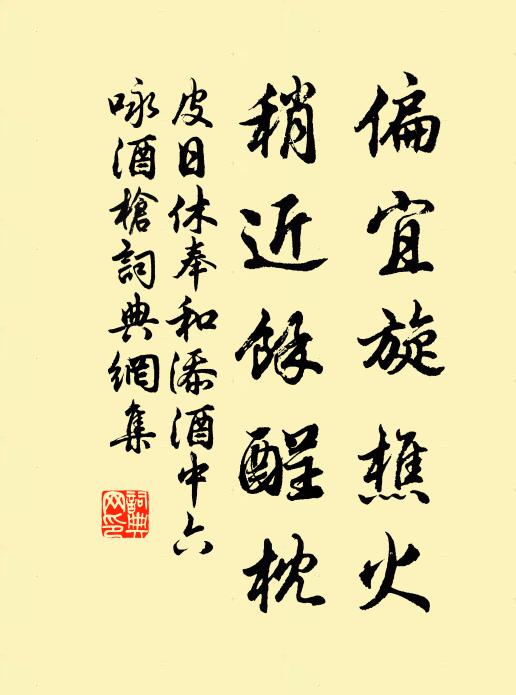 偏宜旋樵火
稍近餘酲枕
皮日休奉和添酒中六
咏酒槍詞典網集
詞典
网印